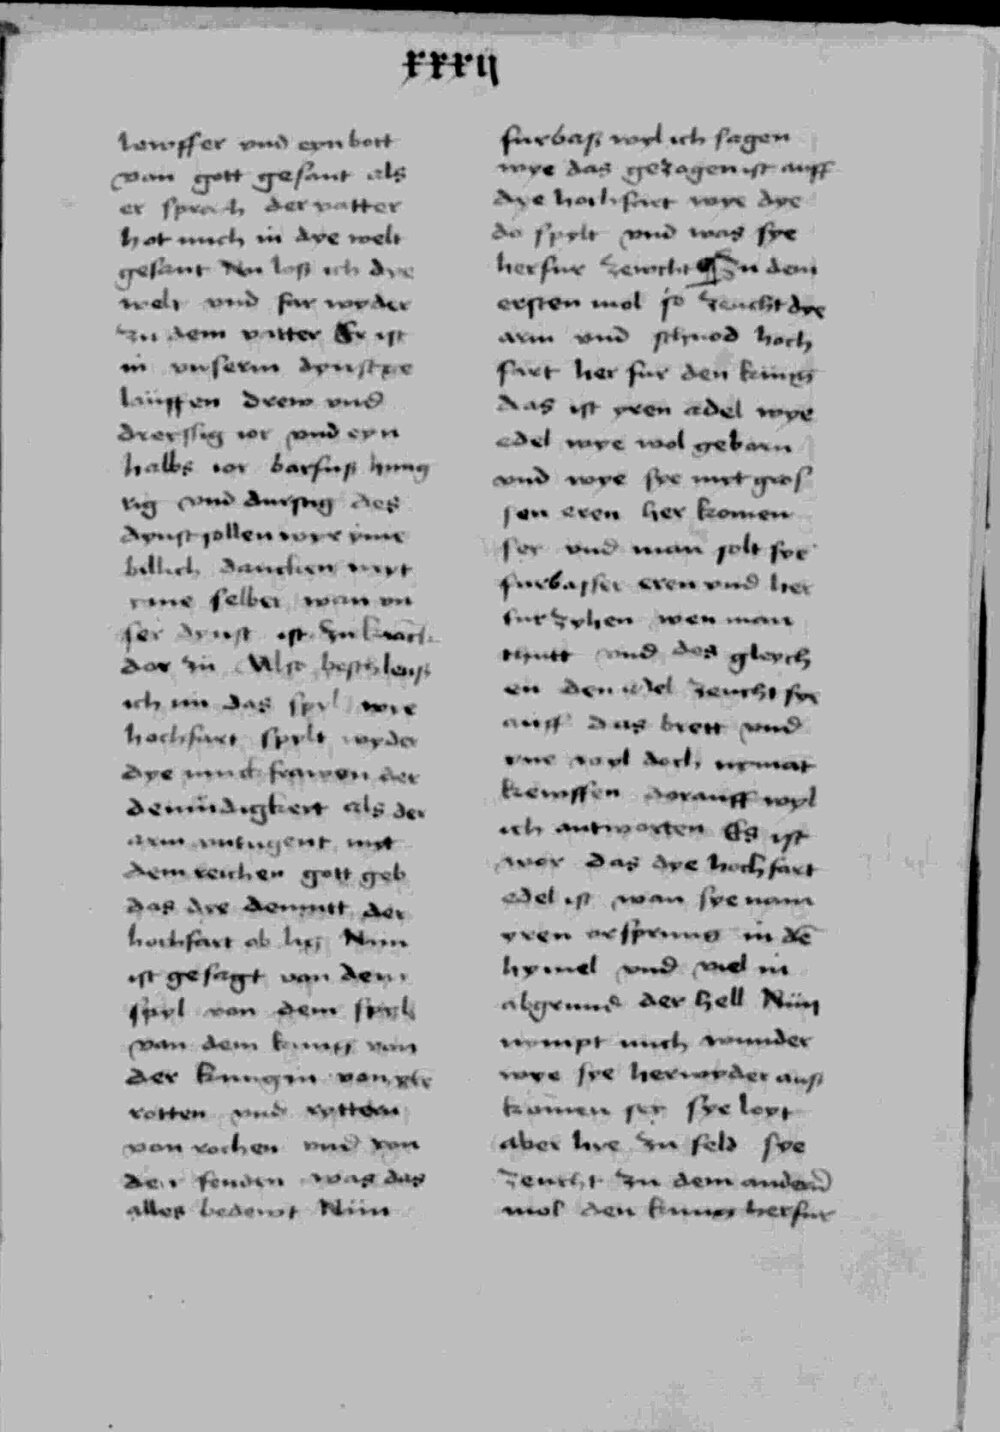 xxxij
lewffer vnd eyn bott
van gott gesant als
er sprach der vatter
hot mich in dye welt
gesant Nu loß ich dye
welt vnd far wyder
zu dem vatter Er ist
in vnserm dynst ye
lauffen drew vnd
dreyssig ior vnd eyn
halbs ior barfuß hung
rig vnd durstig des
dynst sollen wyr yme
billich dancken myt
yme selber wan vn
ser dynst ist zu kranck
dor zu Also beschleuß
ich nu das spyl wye
hochfart spylt wyder
dye iunckfrawen der
demudigkeyt als der
arm vntugent myt
dem reichen gott geb
das dye demutt der
hochfart ab lig Nun
ist gesagt van dem
spyl von dem spyls
van dem kunig van
der kungin van den
rotten vnd ryttern
van rochen vnd von
den fenden was das
alles bedewt Nun
furbaß wyl ich sagen
wye das gezagen ist auff
dye hochfart wye dye
do spylt vnd was sye
herfur zewcht Zu dem
ersten mol so zeucht dye
arm vnd schnod hoch
fart her fur den kunig
das ist yren adel wye
edel wye wol geborn
vnd wye sye myt gros
sen eren her komen
sey vnd man solt sye
furbasser eren vnd her
fur zyhen wen man
thutt vnd des gleych
en den adel zeucht sye
auff das brett vnd
yne wyl doch nymat
kewffen dorauff wyl
ich antworten Es ist
wor das dye hochfart
edel ist wan sye nam
yren orsprung in de
hymel vnd viel in
abgrund der hell Nun
nympt mich wunder
wye sye herwyder auß
komen sey sye leyt
aber hye zu feld sye
zeucht zu dem andern
mol den kunig herfur